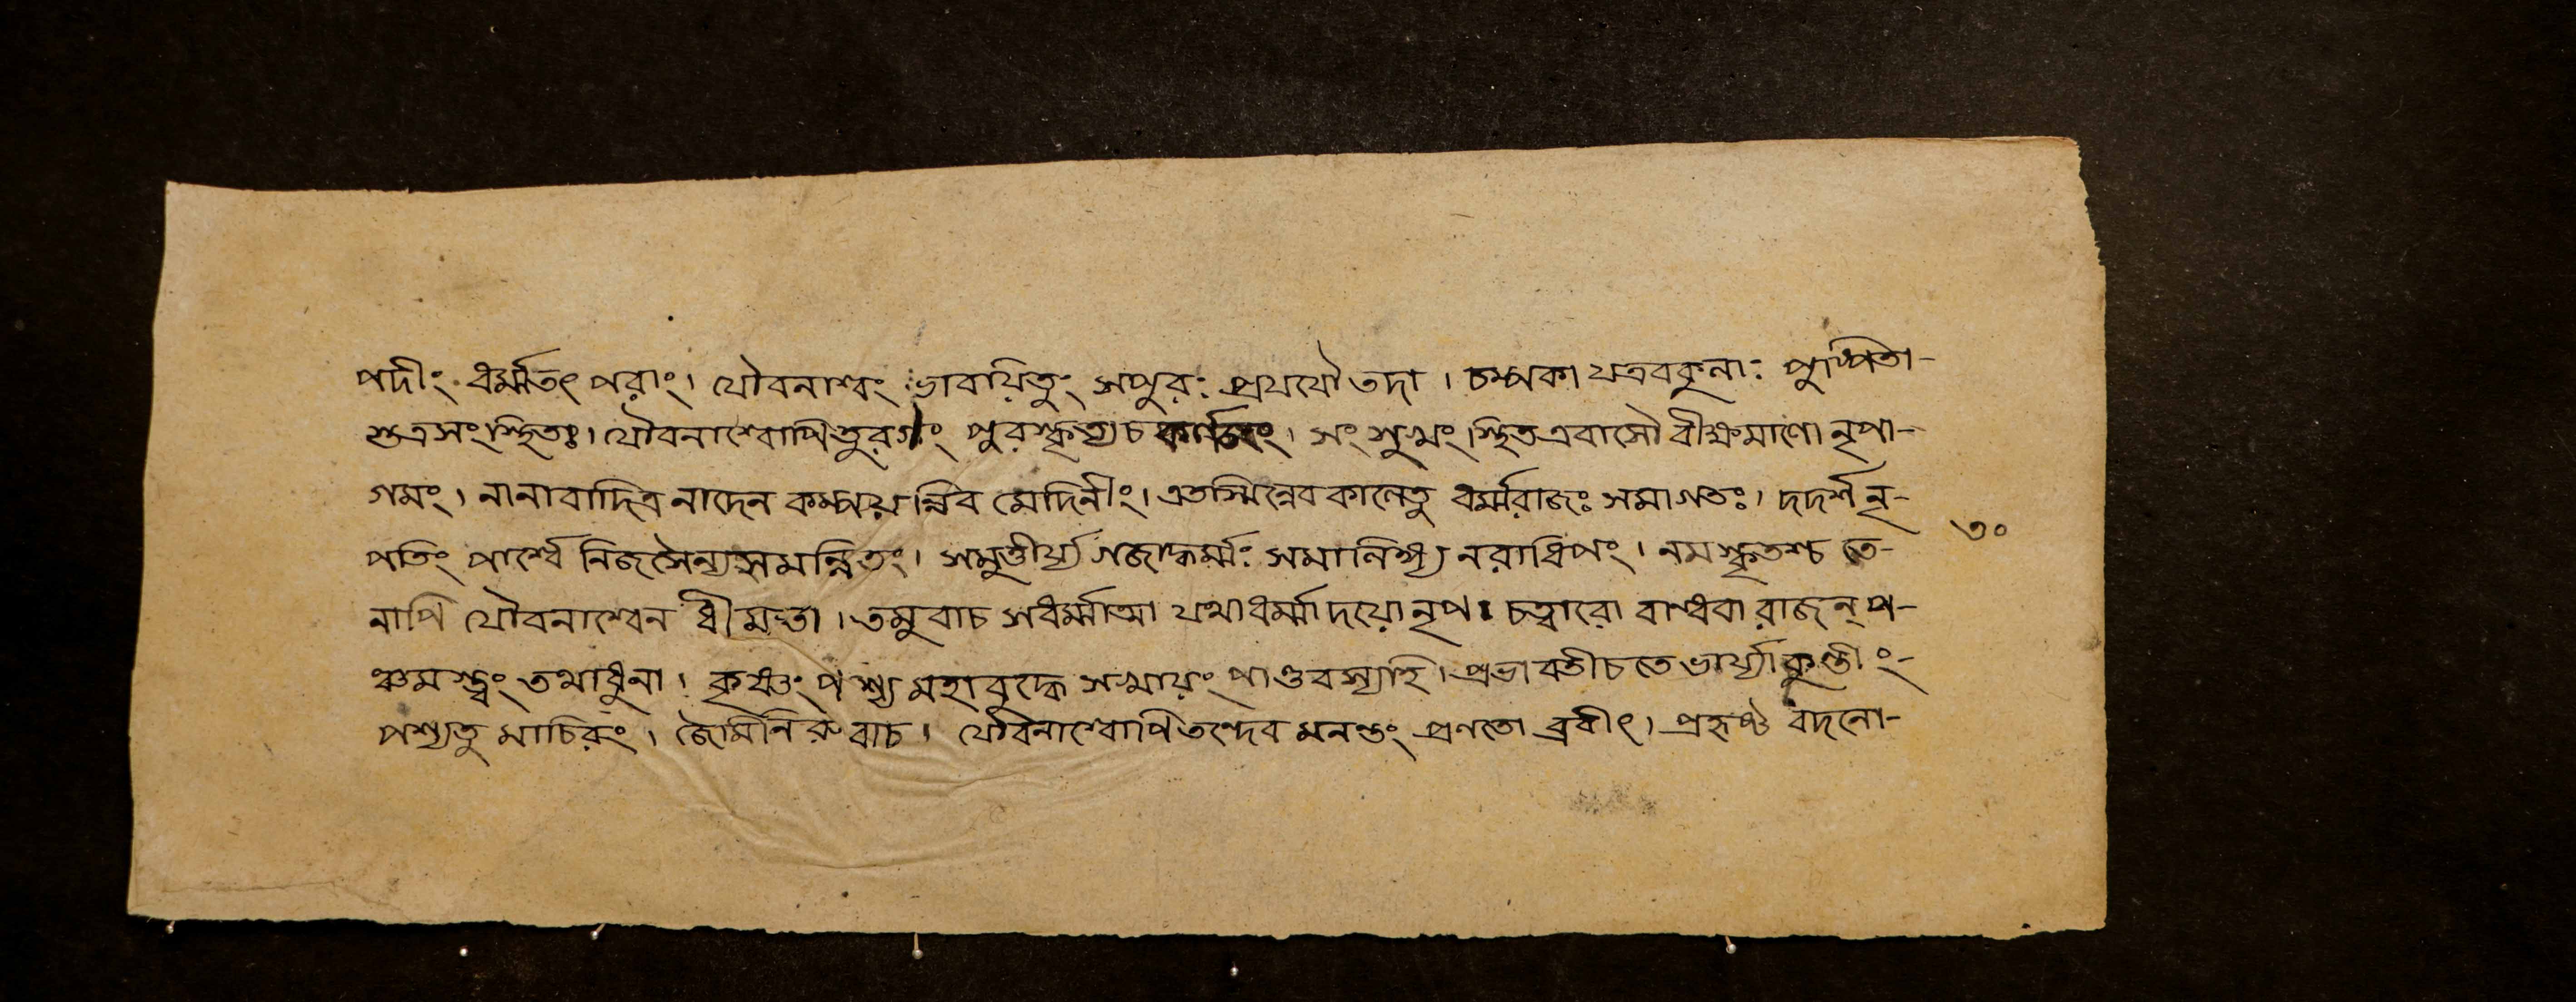 পদীং ধর্ম্মতৎ পরাং। যৌবনাশ্বং ভাবয়িতুং সপুরঃ প্রযযৌ তদা। চম্পকা যত্র বকুলাঃ পুষ্পিতা-
স্তত্র সংস্থিতঃ। যৌবনাশ্বোপি তুরগং পুরস্কৃত্য চ। সং স্থিত এবাসৌ বীক্ষমাণো নৃপা-
গমং। নানাবাদিত্র নাদেন কম্পয়ন্নিব মেদিনীং। এতস্মিন্নেব কালেতু ধর্ম্মরাজঃ সমাগতঃ। দদর্শ নৃ-
পতিং পার্শ্বে নিজসৈন্যসমন্বিতং। সমুত্তীর্য্য গজাদ্ধর্ম্মঃ সমালিঙ্গ্য নরাধিপং। নমস্কৃতশ্চ তে-
নাপি যৌবনাশ্বেন ধীমতা। তমুবাচ স ধর্ম্মাত্মা যথা ধর্ম্মাদয়ো নৃপ। চত্বারো বান্ধবা রাজন্ প-
ঞ্চমস্ত্বং তথাধুনা। কৃষ্ণং পশ্য মহাবুদ্ধে সহায়ং পাণ্ডবস্যহি। প্রভাবতীচ তে ভার্য্যা কুন্তীং-
পশ্যতু মাচিরং। জৈমিনিরুবাচ। যৌবনাশ্বোপি তন্দেব মনন্তং প্রণতো ব্রবীৎ। প্রহৃষ্ট বদনো-
৩০